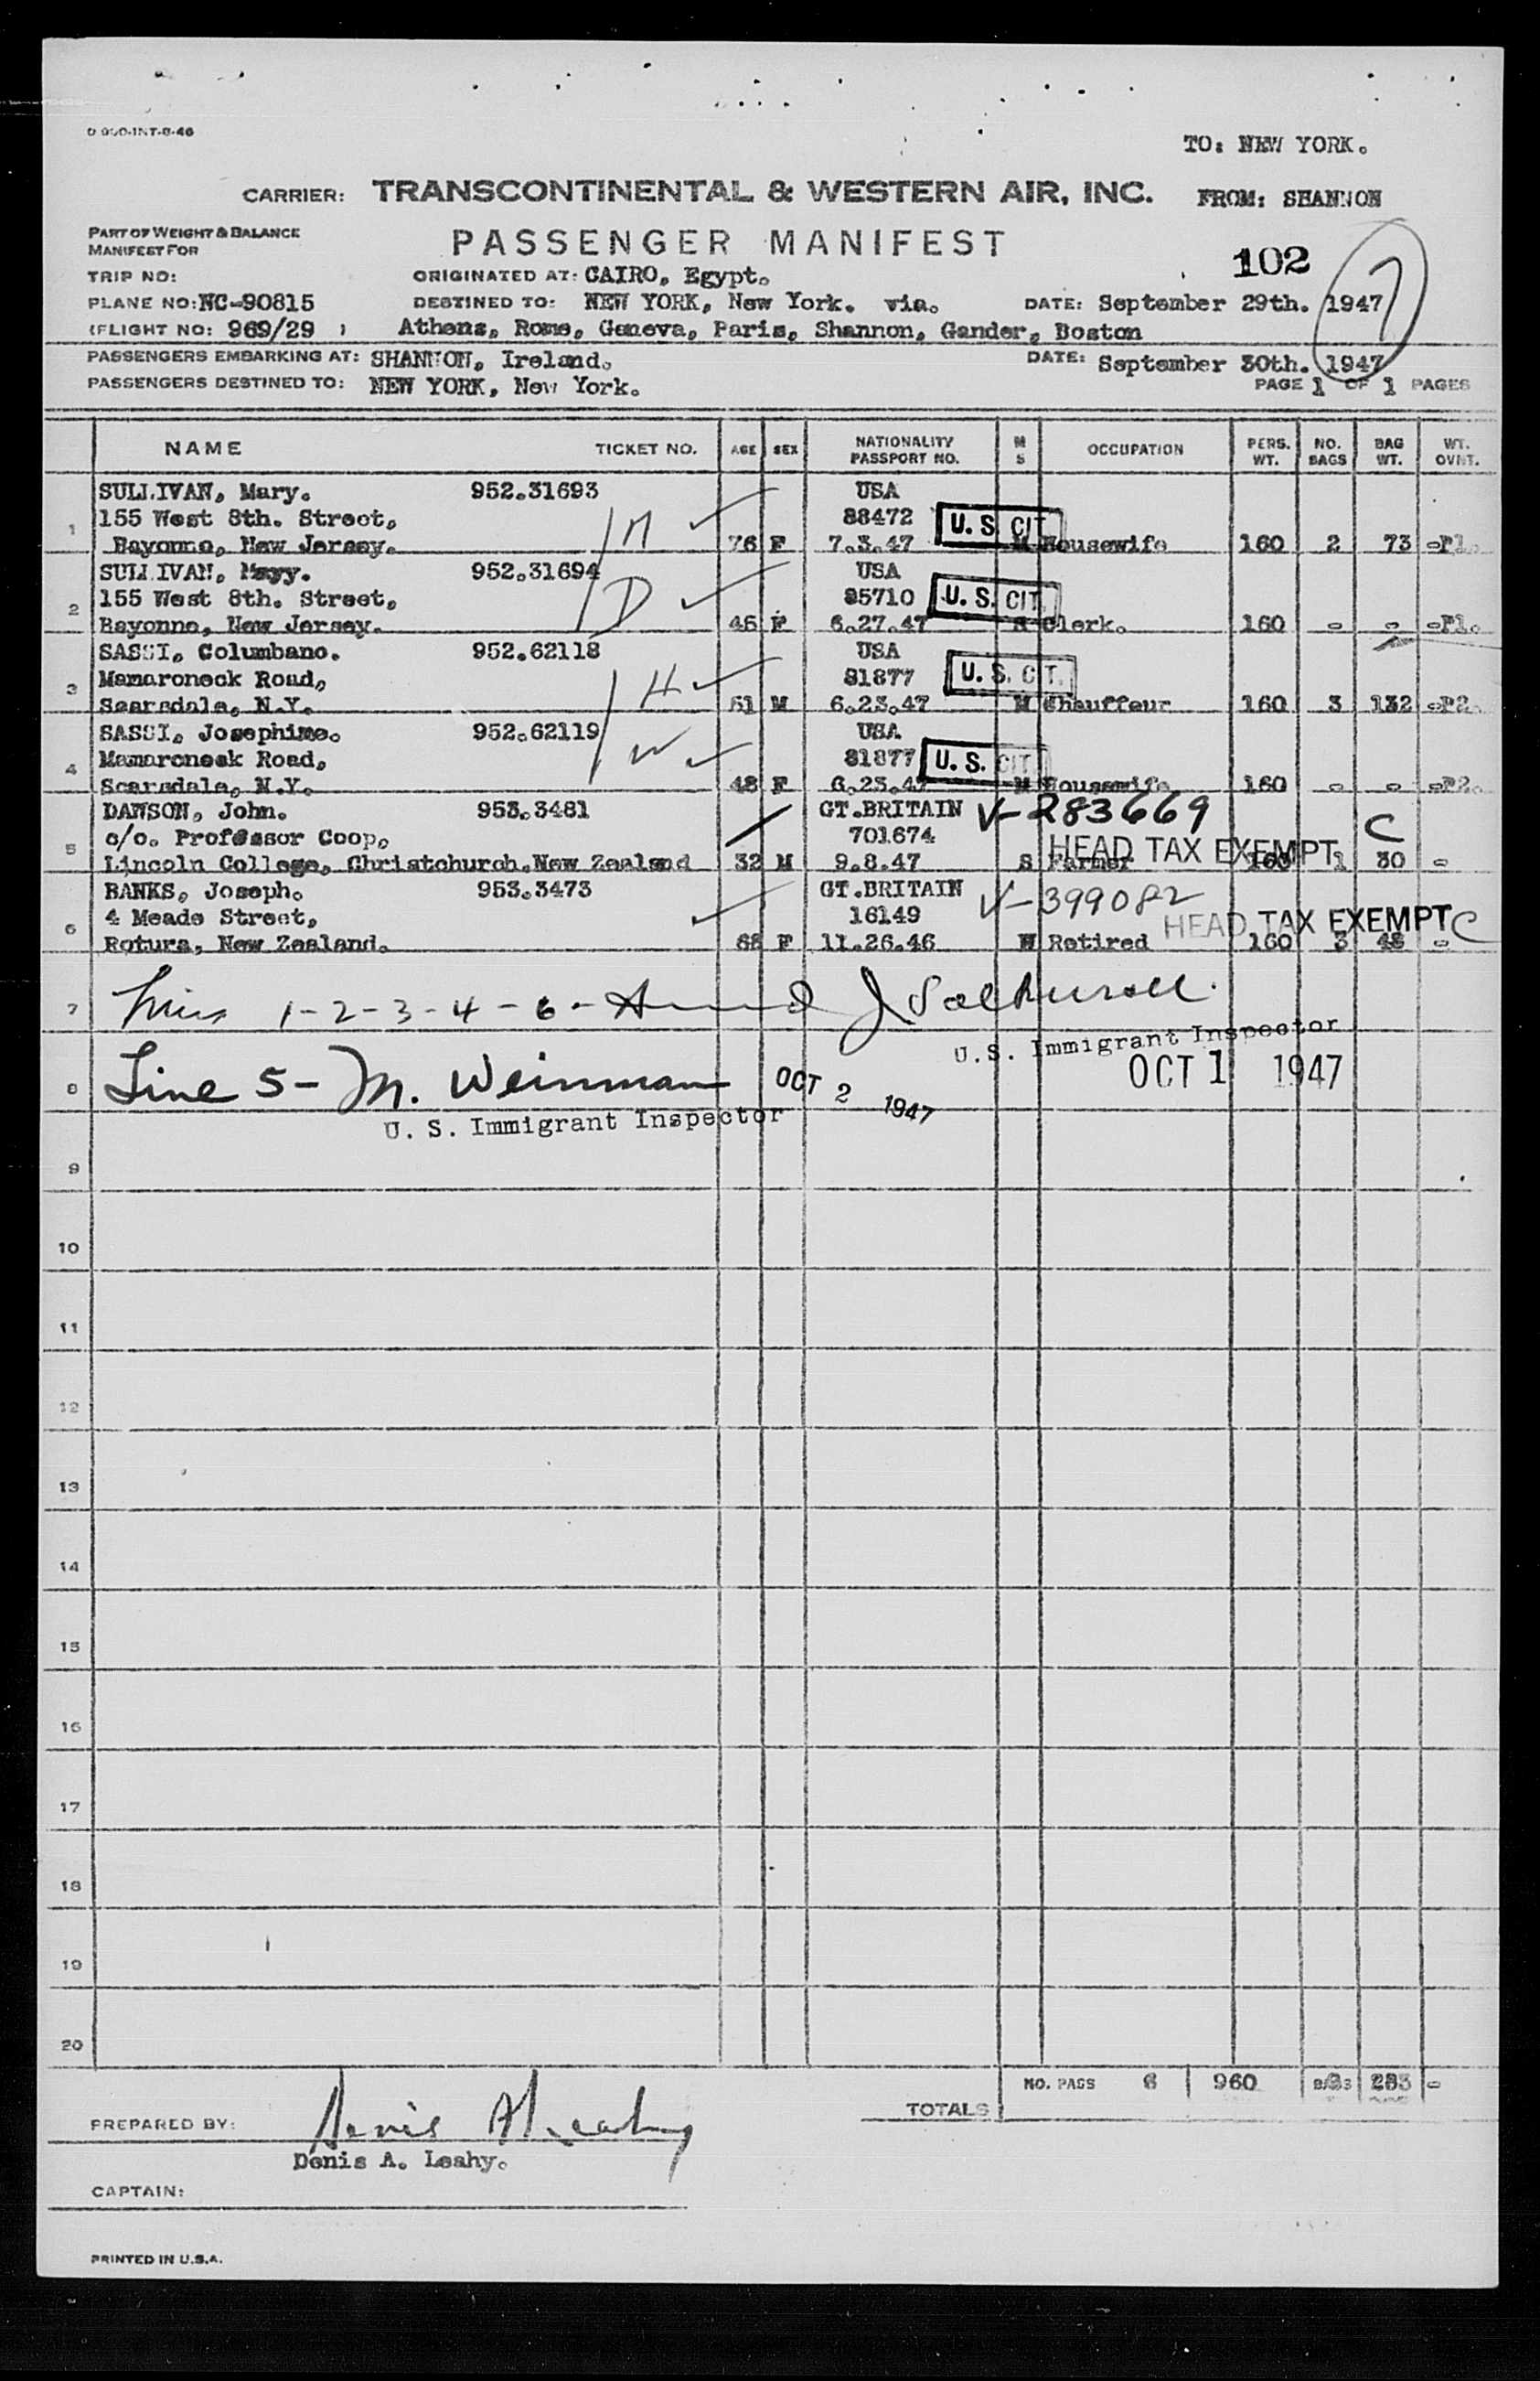 TO: NEW YORK.
CARRIER: TRANSCONTINENTAL & WESTERN AIR, INC. FROM: SHANNON
PART OF WEIGHT & BALANCE
MANIFEST FOR
PASSENGER MANIFEST
102
TRIP NO: ORIGINATED AT: CAIRO, Egypt.
PLANE NO: NC-90815 DESTINED TO: NEW YORK, New York. via. DATE: September 29th. 1947
(FLIGHT NO: 969/29 ) Athens, Rome, Geneva, Paris, Shannon, Gander, Boston
PASSENGERS EMBARKING AT: SHANNON, Ireland. DATE: September 30th. 1947
PASSENGERS DESTINED TO: NEW YORK, New York. PAGE 1 OF 1 PAGES
NAME TICKET NO. AGE SEX NATIONALITY PASSPORT NO. M S OCCUPATION PERS. WT. NO. BAGS BAG WT. WT. OVHT.
SULLIVAN, Mary. 952.31693 USA
1 155 West 8th. Street, M 88472 U.S. CIT.
Bayonne, New Jersey. 76 F 7.3.47 Housewife 160 2 73 -P1.
SULLIVAN, Mayy. 952.31694 USA
2 155 West 8th. Street, D 85710 U.S. CIT.
Bayonne, New Jersey. 46 F 6.27.47 S Clerk. 160 - - -P1.
SASSI, Columbano. 952.62118 USA
3 Mamaroneck Road, H 81877 U.S. CIT.
Scarsdale, N.Y. 51 M 6.23.47 M Chauffeur 160 3 132 -P2.
SASSI, Josephine. 952.62119 USA
4 Mamaroneck Road, W 81877 U.S. CIT.
Scarsdale, N.Y. 48 F 6.23.47 M Housewife 160 - - -P2.
DAWSON, John. 953.3481 GT.BRITAIN V-283669
5 c/o. Professor Coop, 701674 HEAD TAX EXEMPT C
Lincoln College, Christchurch, New Zealand 32 M 9.8.47 S Farmer 160 1 30 -
BANKS, Joseph. 953.3473 GT.BRITAIN V-399082
6 4 Meade Street, 16149 HEAD TAX EXEMPT C
Rotura, New Zealand. 68 F 11.26.46 Retired 160 3 48 -
7 Lines 1-2-3-4-6-
U.S. Immigrant Inspector
OCT 1 1947
8 Line 5- M. Weinman OCT 2 1947
U. S. Immigrant Inspector
9
10
11
12
13
14
15
16
17
18
19
20
NO. PASS 6 960 BAGS 9 283 -
TOTALS
PREPARED BY: Denis A. Leahy
Denis A. Leahy.
CAPTAIN:
PRINTED IN U.S.A.